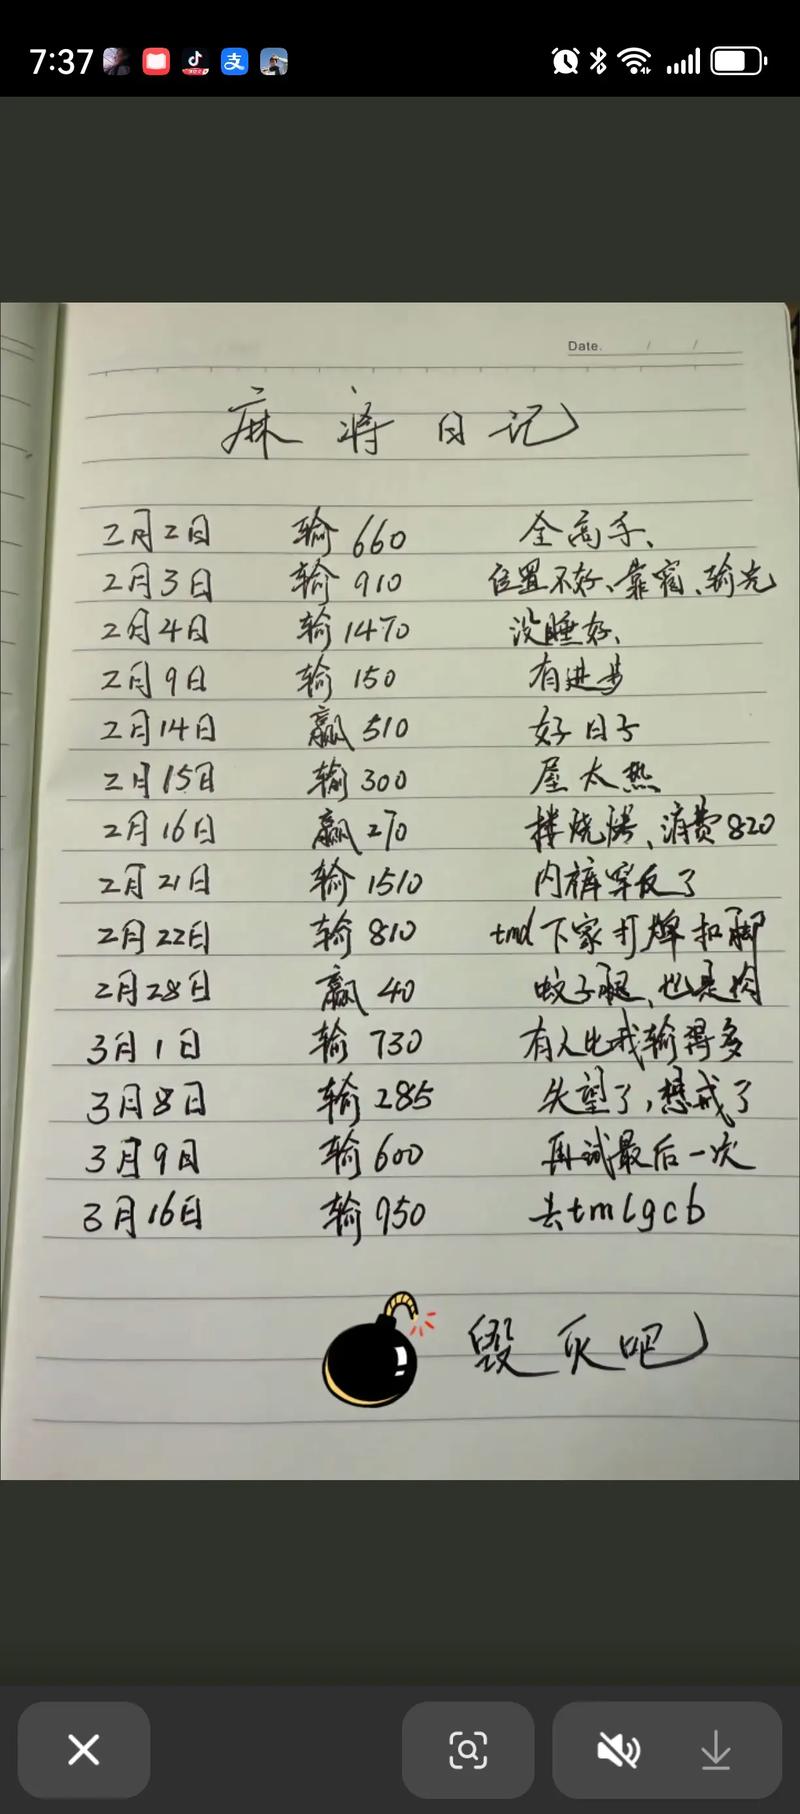 7:37
Date. / /
麻将日记
2月2日 输660 全高手、
2月3日 输910 位置不好、靠窗、输光
2月4日 输1470 没睡好、
2月9日 输150 有进步
2月14日 赢510 好日子
2月15日 输300 屋太热
2月16日 赢270 搂烧烤、消费820
2月21日 输1510 内裤穿反了
2月22日 输810 tmd下家打牌扣脚
2月28日 赢40 蚊子腿、也是肉
3月1日 输730 有人比我输得多
3月8日 输285 失望了,想戒了
3月9日 输600 再试最后一次
3月16日 输950 去tmlgcb
毁灭吧